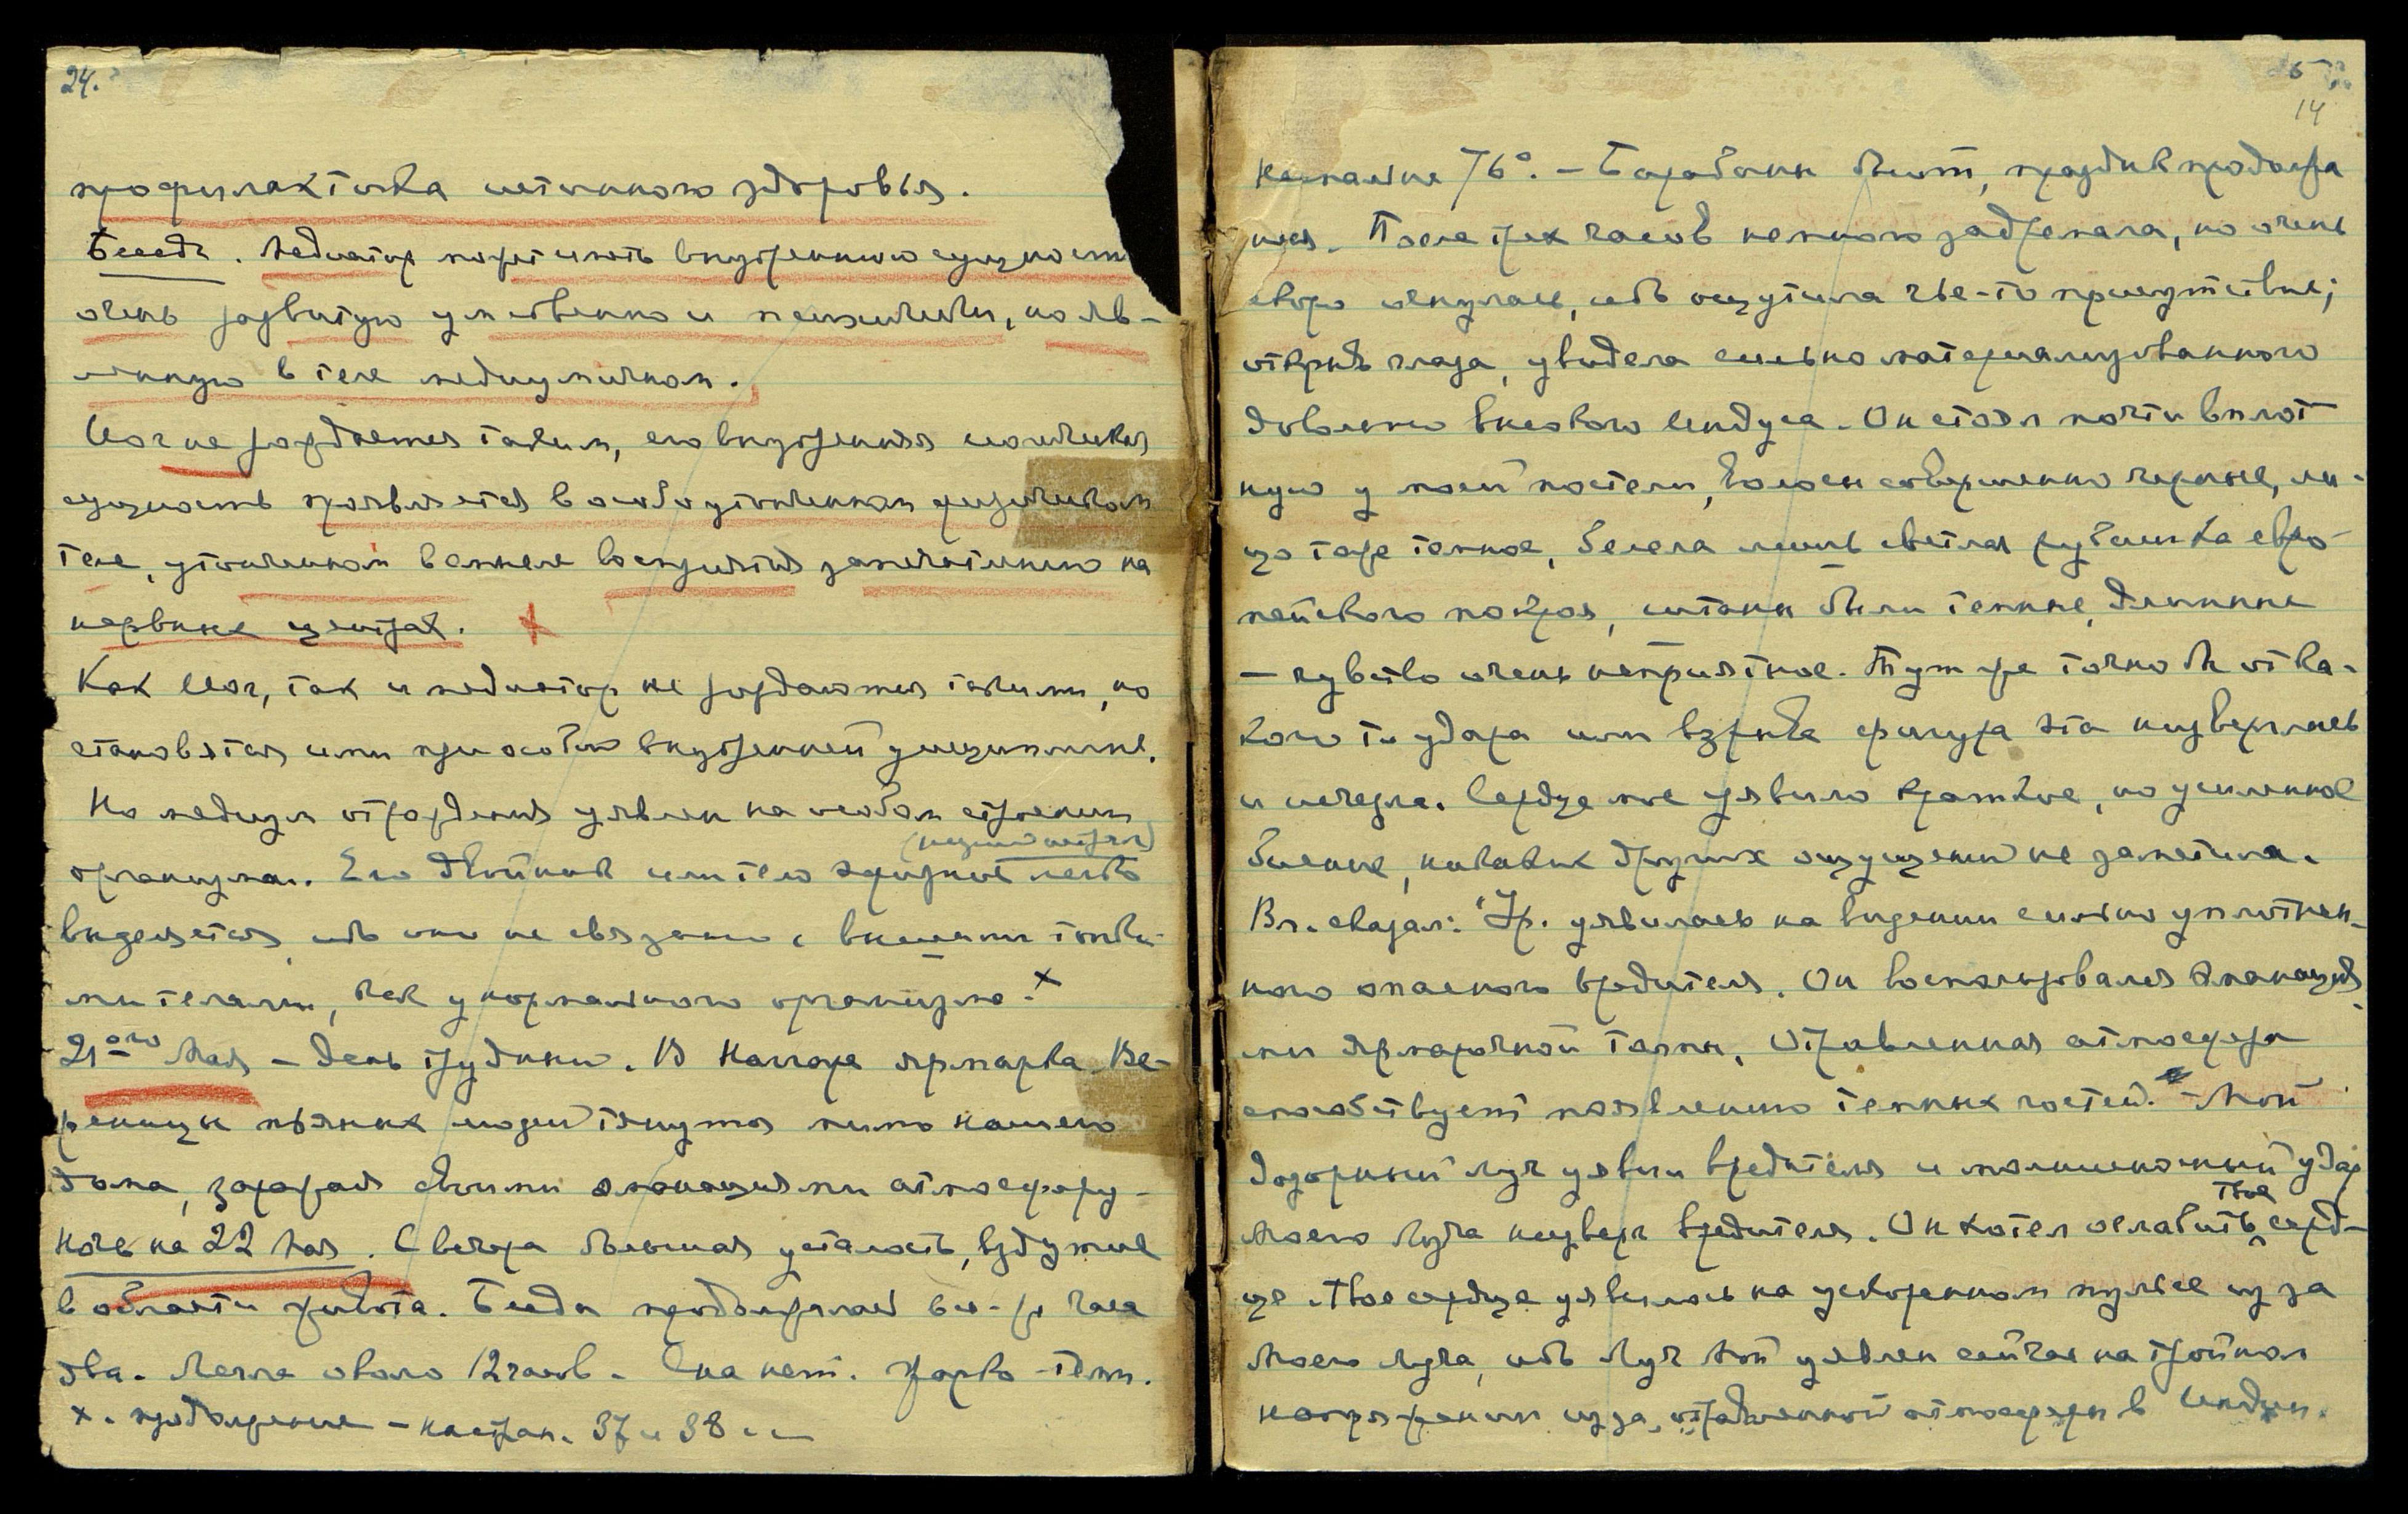 24.
профилактика истинного здоровья.
Беседа. Медиатор может иметь внутреннюю сущность
очень развитую умственно и психически, но яв-
ленную в теле медиумичном.
Йог не рождается таким, его внутренняя йогическая
сущность проявляется в особо утонченном физическом
теле, утонченном в смысле восприятия запечатленного на
нервных центрах. х
Как Йог, так и медиатор не рождаются такими, но
становятся ими при особой внутренней дисциплине.
Но медиум от рождения уявлен на особом строении
(низший астрал)
организма. Его двойник или тело эфирное легко
выделяется, ибо оно не связано с высшими тонки-
ми телами, как у нормального организма. х
21ого Мая – День трудный. В Наггаре ярмарка. Ве-
реницы пьяных людей тянутся мимо нашего
дома, заражая своими эманациями атмосферу –
Ночь на 22 Мая. С вечера большая усталость, вздутие
в области живота. Беседа продолжалась все-же часа
два. Легла около 12 часов. Сна нет. Жарко – темп.
х. продолжение – на стран. 37 и 38
14
комнате 76°. – Барабаны бьют, праздник продолжа
ется. После трех часов немного задремала, но очень
скоро очнулась, ибо ощутила чье-то присутствие;
открыв глаза, увидела сильно материализованного
довольно высокого индуса. Он стоял почти вплот
ную у моей постели, волосы совершенно черные, ли-
цо тоже темное, белела лишь светлая рубашка евро-
пейского покроя, штаны были темные, длинные
– чувство очень неприятное. Тут же точно бы от ка-
кого то удара или взрыва фигура эта низверглась
и исчезла. Сердце мое уявило краткое, но усиленное
биение, никаких других ощущений не заметила.
Вл. сказал: "Ур. уявилась на видении сильно уплотнен-
ного опасного вредителя. Он воспользовался эманация
ми ярмарочной толпы. Отравленная атмосфера
способствует появлению темных гостей. – Мой
дозорный луч уявил вредителя и молниеносный удар
твое
Моего Луча низверг вредителя. Он хотел ослабить серд-
це. Твое сердце уявилось на ускоренном пульсе из за
Моего луча, ибо Луч Мой уявлен сейчас на тройном
напряжении из за отравленной атмосферы в Индии.